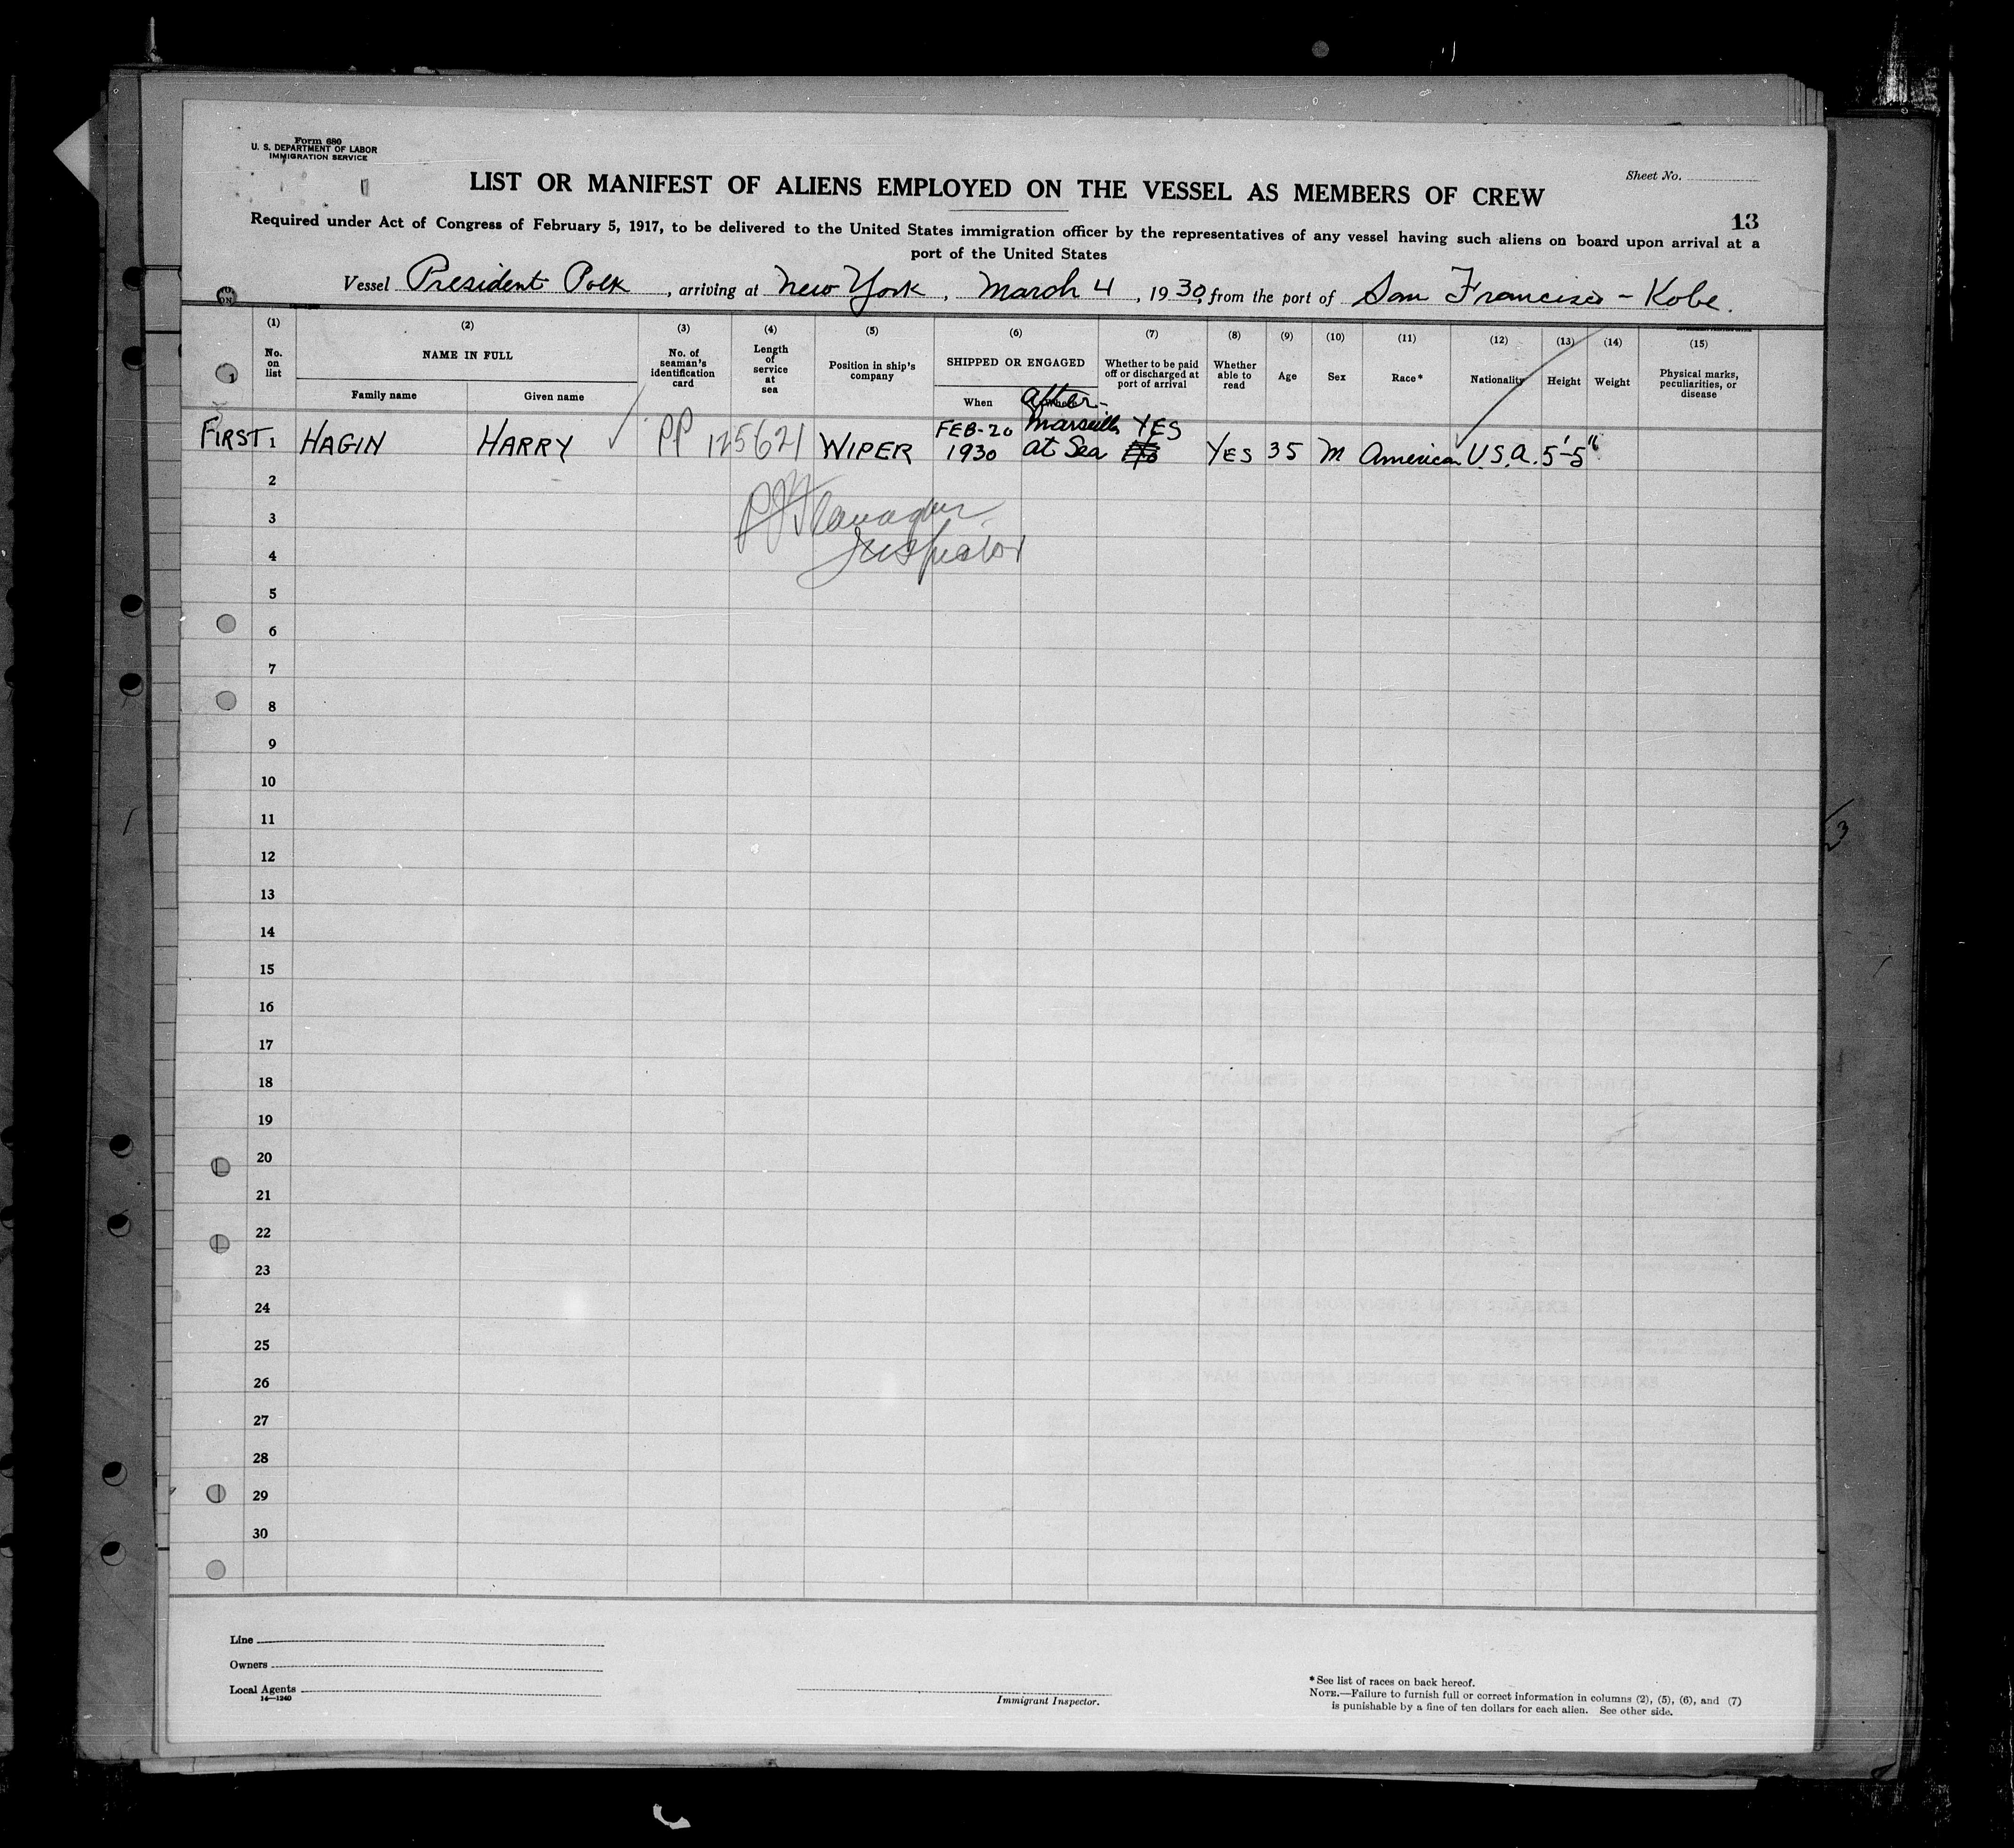 Form 680
U. S. DEPARTMENT OF LABOR
IMMIGRATION SERVICE
Sheet No.
LIST OR MANIFEST OF ALIENS EMPLOYED ON THE VESSEL AS MEMBERS OF CREW
13
Required under Act of Congress of February 5, 1917, to be delivered to the United States immigration officer by the representatives of any vessel having such aliens on board upon arrival at a
port of the United States
Vessel President Polk, arriving at New York, March 4, 1930, from the port of San Francisco - Kobe.
(1) (2) (3) (4) (5) (6) (7) (8) (9) (10) (11) (12) (13) (14) (15)
No. on list
NAME IN FULL
Family name
Given name
No. of seaman's identification card
Length of service at sea
Position in ship's company
SHIPPED OR ENGAGED
When
Whether to be paid off or discharged at port of arrival
Whether able to read
Age
Sex
Race*
Nationality
Height
Weight
Physical marks, peculiarities, or disease
FIRST 1 HAGIN HARRY PP 125621 WIPER FEB-20 1930 after Marseilles at Sea YES YES 35 M American U.S.A. 5'-5"
2
3
Inspector
4
5
6
7
8
9
10
11
12
13
14
15
16
17
18
19
20
21
22
23
24
25
26
27
28
29
30
Line
Owners
Local Agents
14—1240
Immigrant Inspector.
*See list of races on back hereof.
NOTE.—Failure to furnish full or correct information in columns (2), (5), (6), and (7)
is punishable by a fine of ten dollars for each alien. See other side.